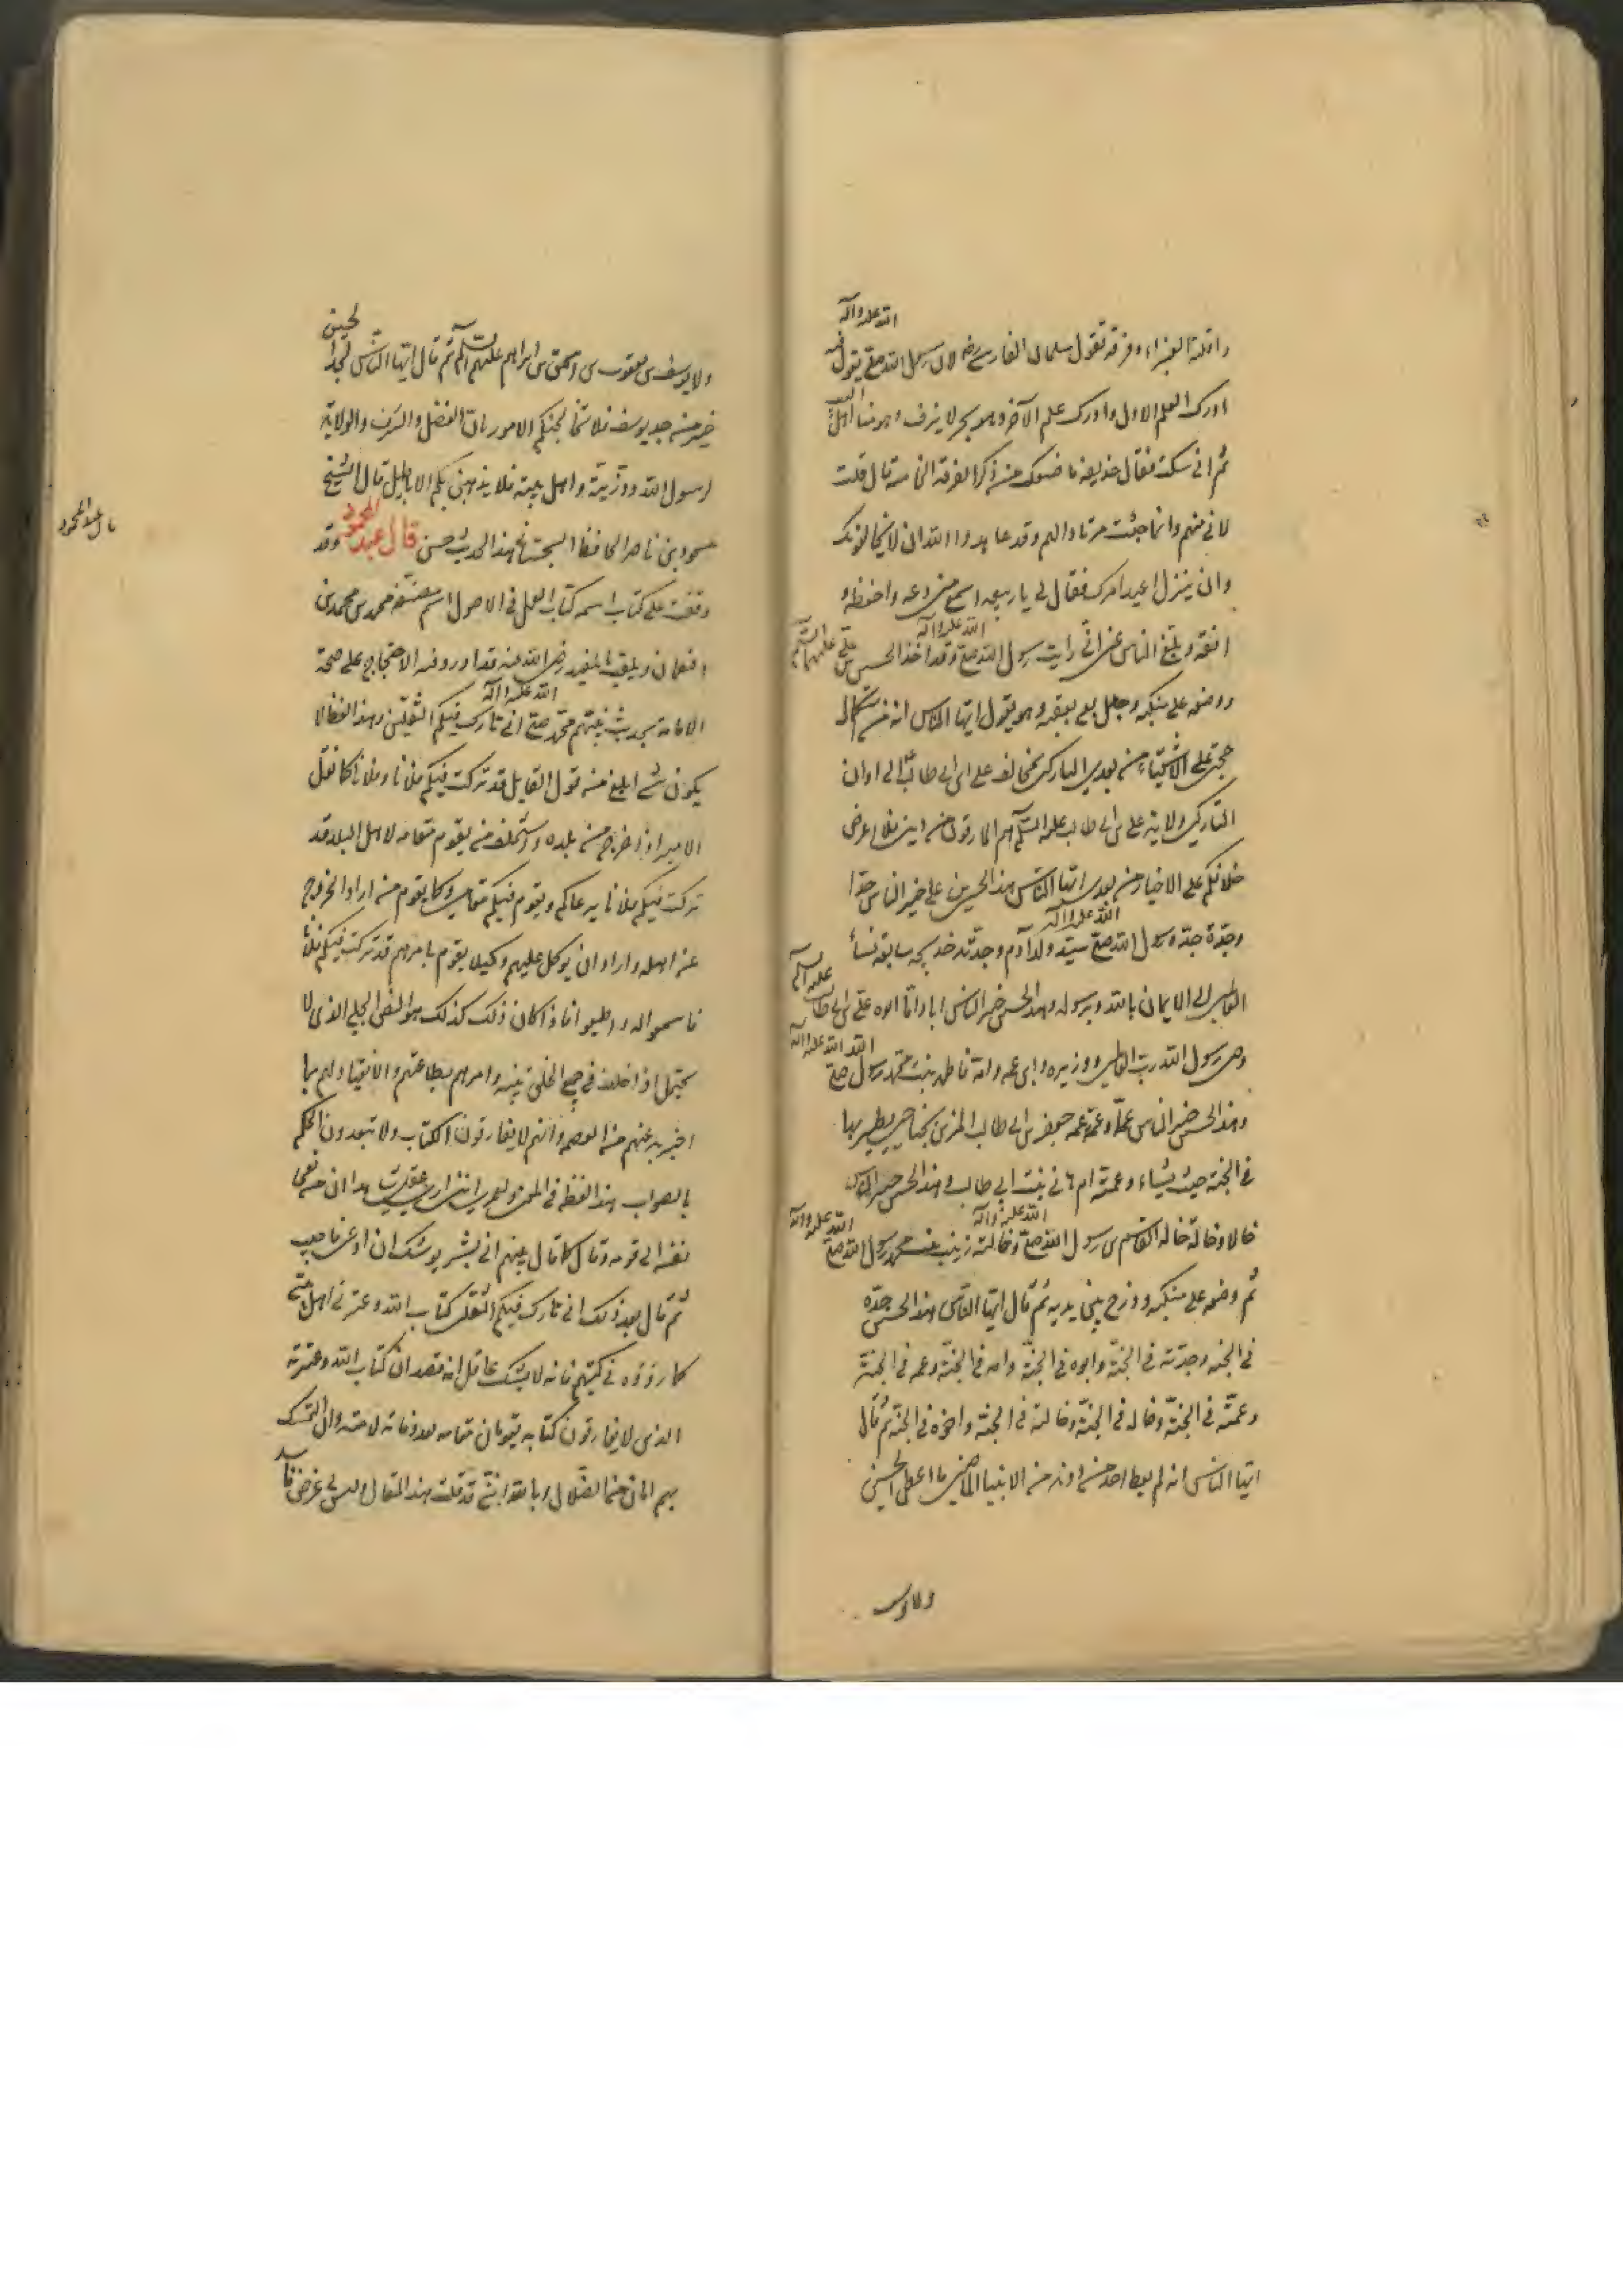 الله عليه وآله
واقلت الغبراء وفرقة تقول سلمان الفارسي لان رسول الله صلع يقول فيه
ادرك العلم الاول وادرك علم الآخر وهو بحر لا ينزف وهو منا اهل البيت
ثم اني سكت فقال حذيفة ما ضعك من ذكر الفرقة الخامسة قال قلت
لاني منهم وانما جئت مرتادا لهم وقد عاهدوا الله ان لا يخالفونك
وان ينزلوا عند امرك فقال لي يا ربيعة اسمع مني وعه واحفظه و
الله عليه وآله
انقه وبلغ الناس عني اني رايت رسول الله صلع وقد اخذ الحسين بن علي عليهما السلام
ووضعه على منكبه وجعل يقي بعقبه وهو يقول ايها الناس انه من استكمال
حجتي على الاشقياء من بعدي التاركين ولاية علي بن ابي طالب الا وان
التاركين ولاية علي بن ابي طالب عليه السلام هم المارقون من ديني فلا اعرفن
خلافكم على الاخيار من بعدي ايها الناس هذا الحسين بن علي خير الناس جدا
الله عليه وآله
وجدة جده رسول الله صلع سيد ولد آدم وجدته خديجة سابقة نساء
العالمين الى الايمان بالله وبرسوله وهذا الحسين خير الناس ابا واما ابوه علي بن ابي طالب عليه السلام
الله عليه وآله
وصي رسول الله رب العالمين ووزيره وابن عمه وامه فاطمة بنت محمد رسول الله صلع
وهذا الحسين خير الناس عما وعمة عمه جعفر بن ابي طالب المزين بجناحين يطير بهما
في الجنة حيث يشاء وعمته ام هاني بنت ابي طالب وهذا الحسين خير الناس
الله عليه وآله الله عليه وآله
خالا وخالة خاله القاسم بن رسول الله صلع وخالته زينب بنت محمد رسول الله صلع
ثم وضعه على منكبه ودرج بين يديه ثم قال ايها الناس هذا الحسين جده
في الجنة وجدته في الجنة وابوه في الجنة وامه في الجنة وعمه في الجنة
وعمته في الجنة وخاله في الجنة وخالته في الجنة واخوه في الجنة ثم قال
ايها الناس انه لم يعط احد من ذرية من الانبياء الماضين ما اعطي الحسين
ولا يوسف
ولا يوسف بن يعقوب بن اسحق بن ابراهيم عليهم السلام ثم قال ايها الناس لجد الحسين
خير من جد يوسف فلا تخالجنكم الامور بان الفضل والشرف والولاية
لرسول الله وذريته واهل بيته فلا يذهبن بكم الاباطيل قال الشيخ
مسعود بن ناصر الحافظ السجستاني هذا الحديث حسن قال عبد المحمود وقد
قال عبد المحمود
وقفت على كتاب اسمه كتاب العمد في الاصول اسم مصنفه محمد بن محمد بن
النعمان ويلقب بالمفيد رضي الله عنه قد اورد فيه الاحتجاج على صحة
الله عليه وآله
الامامة بحديث نبيهم محمد صلع اني تارك فيكم الثقلين وهذا لفظه لا
يكون شيء ابلغ من قول القايل قد تركت فيكم فلانا وفلانا كما نقل
الامير اذا خرج من بلده واستخلف من يقوم مقامه لاهل البلد قد
تركت فيكم فلانا يرعاكم ويقوم فيكم مقامي وكما يقوم من اراد الخروج
عن اهله واراد ان يوكل عليهم وكيلا يقوم بامرهم قد تركت فيكم فلانا
فاسمعوا له واطيعوا فاذا كان ذلك كذلك هو النص الجلي الذي لا
يحتمل اذ اخلف في جميع الخلق بينه وامرهم بطاعتهم والانقياد لهم بما
اخبر به عنهم من العصمة وانهم لا يفارقون الكتاب ولا يتعدون الحكم
بالصواب هذا لفظه في المعنى ولعمري انني اري عقولي هذا ان من نعى
نفسه الى قومه وقال كما قال نبيهم اني بشر يوشك ان ادعى فاجيب
ثم قال بعد ذلك اني تارك فيكم الثقلين كتاب الله وعترتي اهل بيتي
كما رووه في كتبهم فانه لا يشك عاقل انه قصد ان كتاب الله وعترته
الذي لا يفارقون كتابه يقومان مقامه بعد وفاته لامته وان التمسك
بهم امان من الضلال وبالله اني قد قلت هذا المقال وليس لي غرض فاسد